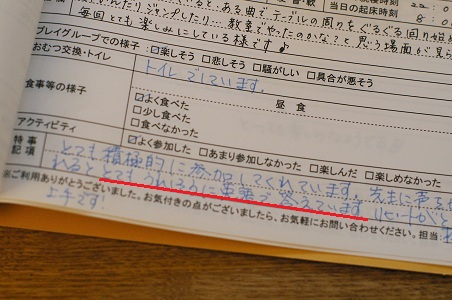 かたりジャンプしたり… ある曲でテーブルの周りをぐるぐる回り始め
当日の起床時刻 8:0
毎回とても楽しみにしている様です♪
プレイグループでの様子: ☑楽しそう □悲しそう □騒がしい □具合が悪そう
おむつ交換・トイレ トイレでしています。
食事等の様子 昼食
☑よく食べた
□少し食べた
□食べなかった
アクティビティ ☑よく参加した □あまり参加しなかった □楽しんだ □楽しめなかった
特事記項 とても積極的に参加してくれています。先生に声を
れるととてもうれしそうに英語で答えています。リピートがと
※ご利用ありがとうございました。お気付きの点がございましたら、お気軽にお問い合わせください。担当:
上手です!